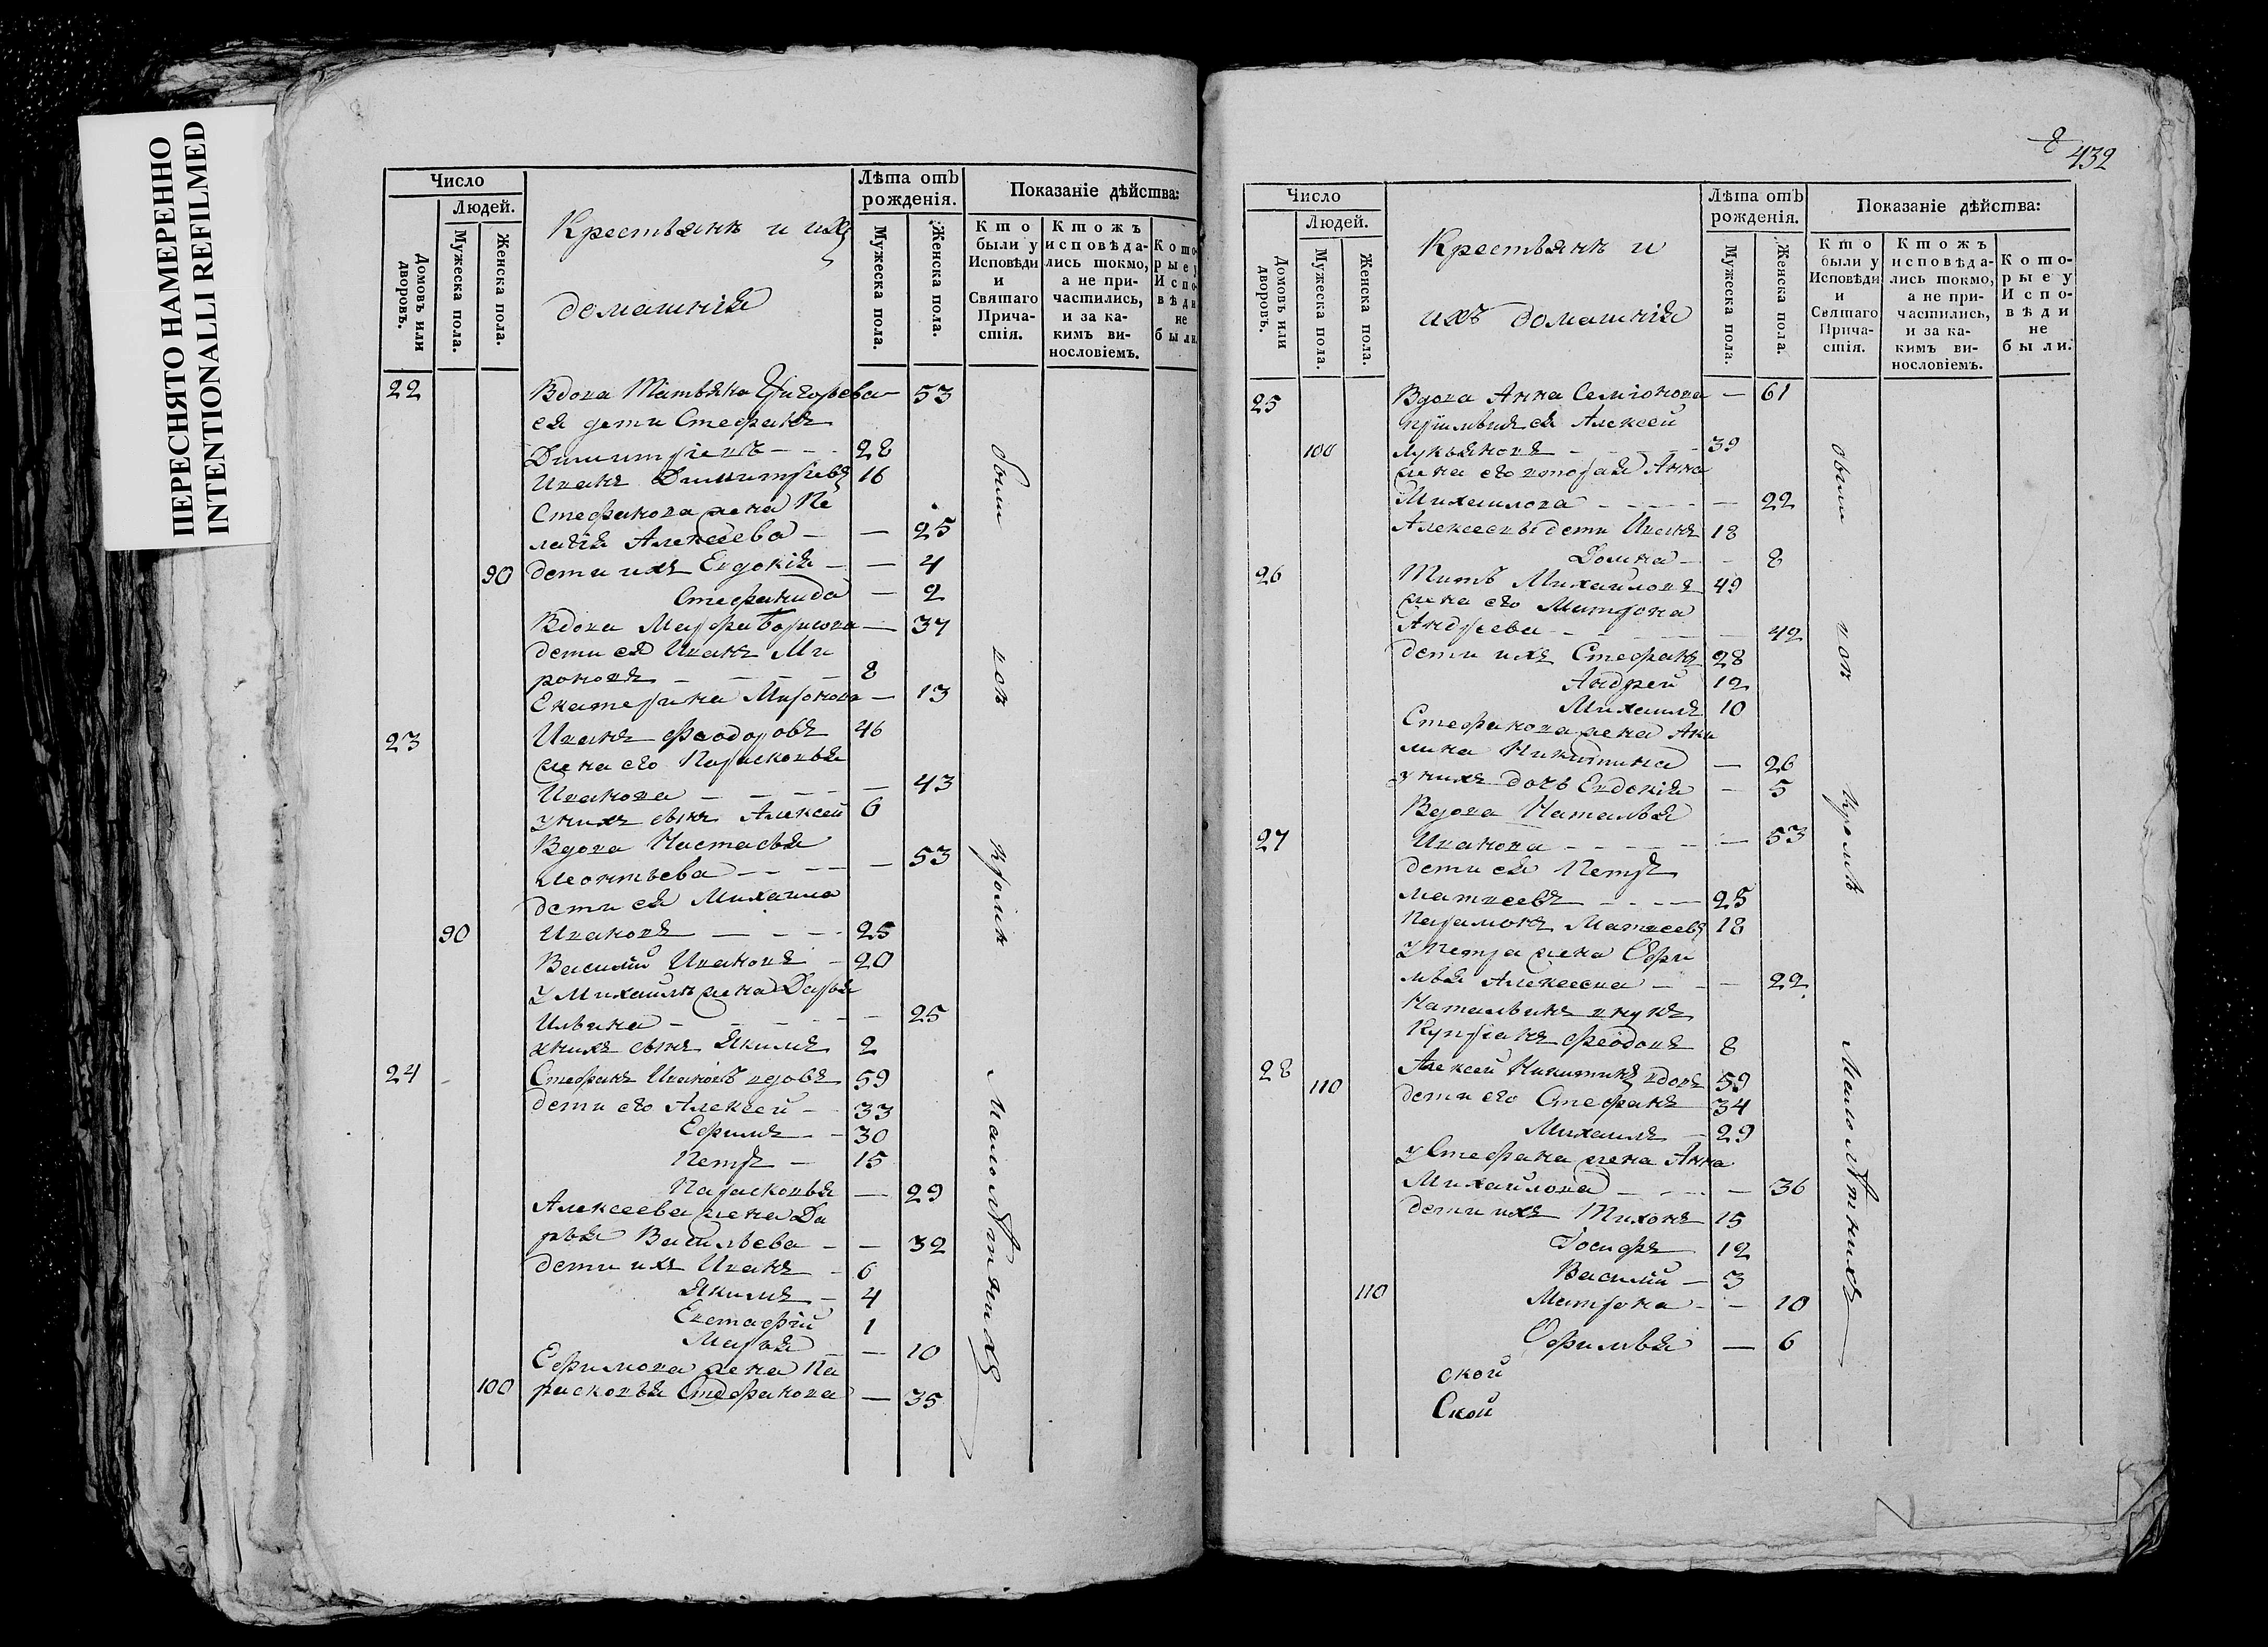 ПЕРЕСНЯТО НАМЕРЕННО
INTENTIONALLI REFILMED
Число
Людей.
Домовъ или дворовъ.
Мужеска пола.
Женска пола.
Крестьянъ и ихъ
домашнія
Лѣта отъ рожденія.
Мужеска пола.
Женска пола.
Показаніе дѣйства:
Кто были у Исповѣди и Святаго Причастія.
Ктожъ исповѣдались токмо, а не причастились, и за какимъ винословіемъ.
Которые у Исповѣди не были.
22 Вдова Татьяна Григорьева — 53
ея дети Стефанъ
Димитріевъ - - - 28
Иванъ Димитріевъ 16
Стефанова жена Пе
лагія Алексеева — — 25
90 дети ихъ Евдокія — — 4
Стефанида — 2
Вдова Марфа Борисова — 37
дети ея Иванъ Ми
роновъ — — — 8
Екатерина Миронова — 13
23 Иванъ Феодоровъ 46
жена его Парасковья
Иванова — — — — 43
у нихъ сынъ Алексей 6
Вдова Настасья
Леонтьева — — — — 53
дети ея Михаила
90 Ивановъ — — — 25
Василій Ивановъ — 20
у Михайлы жена Дарья
Ильина — — — — 25
у нихъ сынъ Якимъ 2
24 Стефанъ Ивановъ вдовъ 59
дети его Алексей — 33
Ефимъ — 30
Петръ — 15
Парасковья — 29
Алексеева жена Да
рья Васильева — — 32
дети ихъ Иванъ — 6
Якимъ — 4
Евстафій 1
Марья — 10
Ефимова жена Па
100 расковья Стефанова — 35
были вси кромѣ Малолѣтнихъ
8
432
Число
Людей.
Домовъ или дворовъ.
Мужеска пола.
Женска пола.
Крестьянъ и
ихъ домашнія
Лѣта отъ рожденія.
Мужеска пола.
Женска пола.
Показаніе дѣйства:
Кто были у Исповѣди и Святаго Причастія.
Ктожъ исповѣдались токмо, а не причастились, и за какимъ винословіемъ.
Которые у Исповѣди не были.
25 Вдова Анна Семіонова — 61
ея Алексей
100 Лукьяновъ — — — 39
жена его вторая Анна
Михаилова - - - - — 22
Алексеевы дети Иванъ 18
Домна — - 8
26 Титъ Михайловъ 49
жена его Матрона
Андреева - - - — 42
дети ихъ Стефанъ 28
Андрей 12
Михаилъ 10
Стефанова жена Аки
лина Никитина — 26
у нихъ дочь Евдокія — 5
Вдова Наталья
27 Иванова - - - - — 53
дети ея Петръ
Матвеевъ - - - — 25
Парамонъ Матвеевъ 18
у Петра жена Офи
мья Алексеева — - — 22
Натальинъ внукъ
Купріанъ Феодовъ 8
28 110 Алексей Никитинъ вдовъ 59
дети его Стефанъ 34
Михаилъ — 29
у Стефана жена Анна
Михайлова — - - — 36
дети ихъ Тихонъ 15
Іосифъ 12
Василій — 3
110 Матрона - — 10
Офимья — 6
ской
Ской
были вси кромѣ Малолѣтнихъ